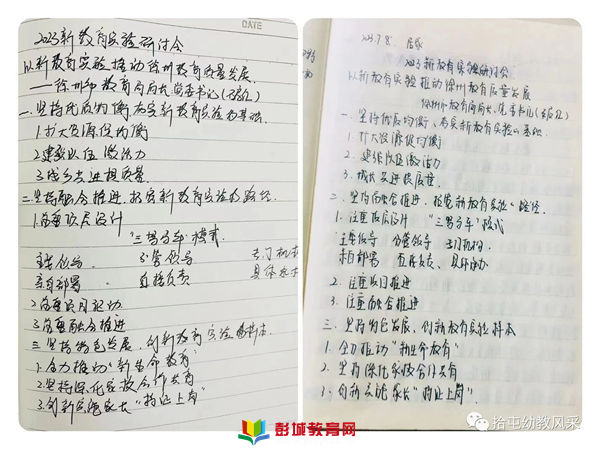 DATE
2023新教育实验研讨会
以新教育实验推动徐州教育高质量发展
——徐州市教育局局长、党委书记
一、坚持优质均衡，夯实新教育实验的基础
1.扩大资源促均衡
2.建强队伍激活力
3.城乡共进提质量
二、坚持融合推进，拓宽新教育实验的路径
1.注重顶层设计
"三驾马车"模式
主要领导 分管领导 专门机构
亲自部署 直接负责 具体承办
2.注重项目驱动
3.注重融合推进
三、坚持特色发展，创新教育实验新样本
1.全力推动"新生命教育"
2.坚持深化家校合作共育
3.创新实施家长"持证上岗"
彭城教育网
2023.7.8
2023新教育实验研讨会
以新教育实验推动徐州教育高质量发展
徐州市教育局局长、党委书记
一、坚持优质均衡，夯实新教育实验的基础
1.扩大资源促均衡
2.建强队伍激活力
3.城乡共进提质量
二、坚持融合推进，拓宽新教育实验的路径
1.注重顶层设计 "三驾马车"模式
主要领导 分管领导 专门机构
亲自部署 直接负责 具体承办
2.注重项目推进
3.注重融合推进
三、坚持特色发展，创新教育实验样本
1.全力推动"新生命教育"
2.坚持深化家校合作共育
3.创新实施家长"持证上岗"
拾屯幼教风采